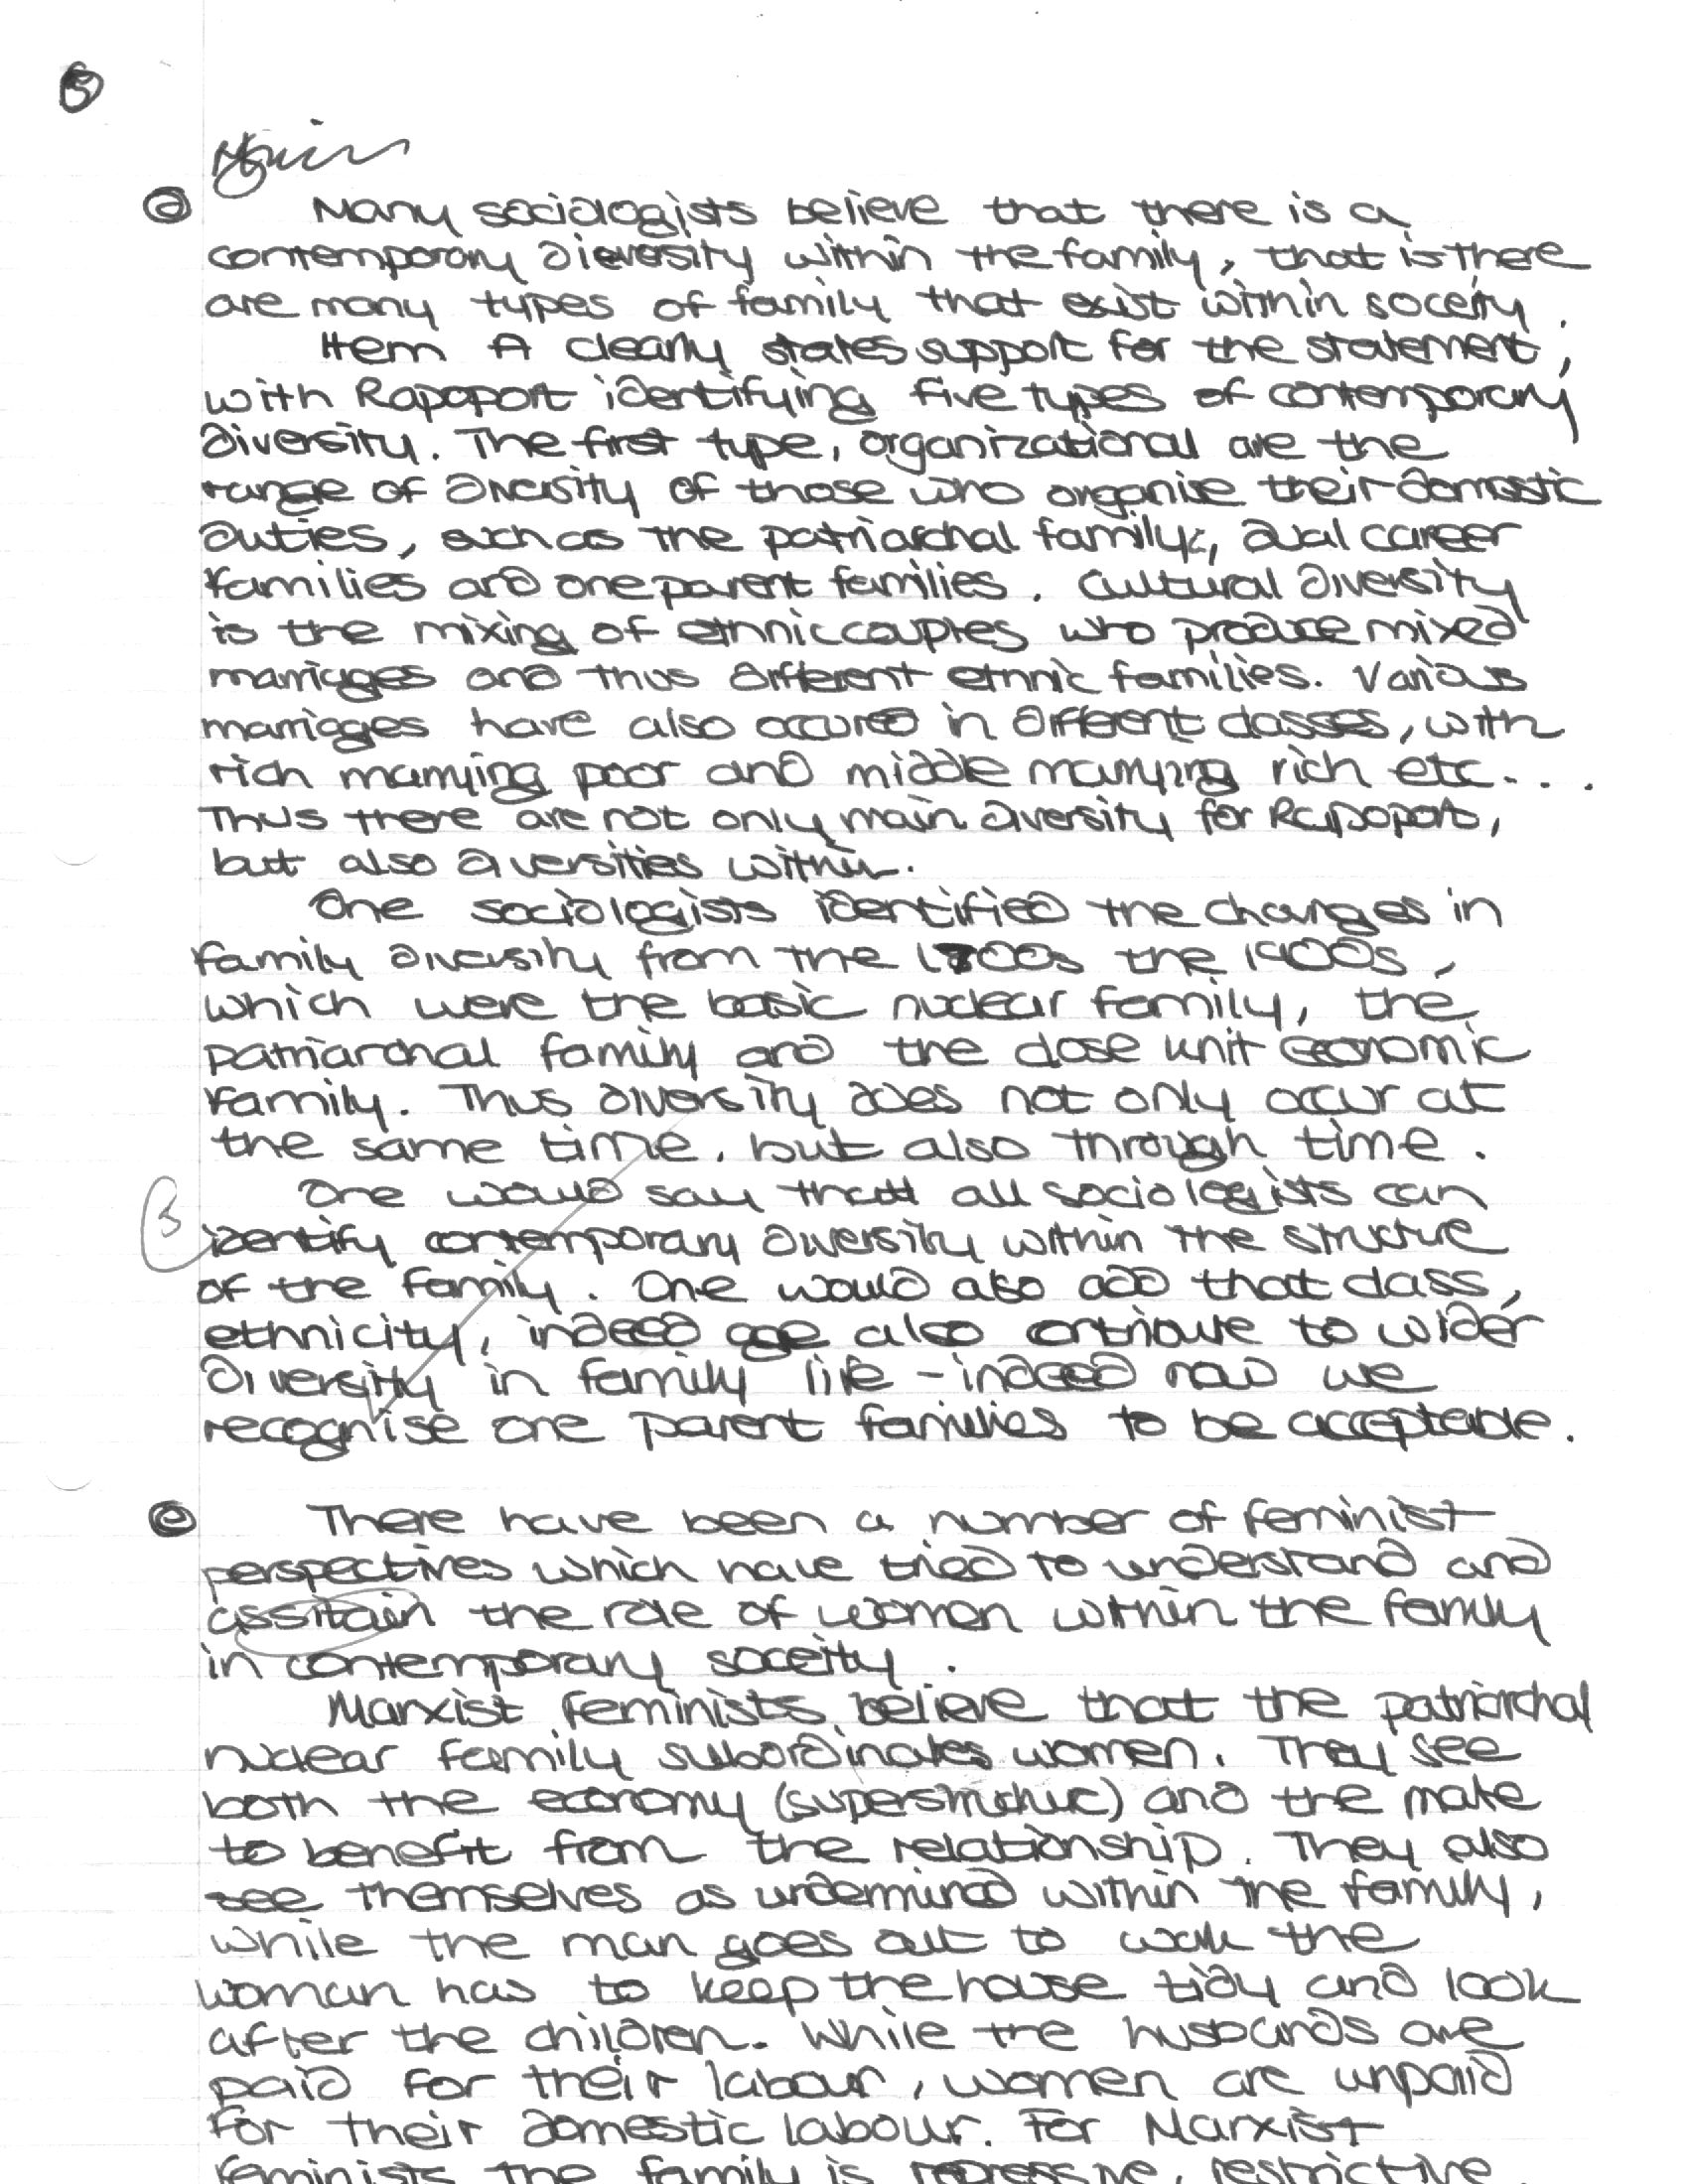 5
@ Many sociologists believe that there is a
contemporary dieversity within the family, that is there
are many types of family that exist within soceity.
Item A clearly states support for the statement,
with Rapoport identifying five types of contemporary
diversity. The first type, organizational are the
range of diversity of those who organise their domestic
duties, such as the patriarchal family, dual career
families and one parent families. Cultural diversity
is the mixing of ethnic couples who produce mixed
marriages and thus different ethnic families. Various
marriages have also occured in different classes, with
rich marrying poor and middle marrying rich etc...
Thus there are not only main diversity for Rapoport,
but also diversities within.
One sociologists identified the changes in
family diversity from the 1700s the 1900s,
which were the basic nuclear family, the
patriarchal family and the close unit economic
family. Thus diversity does not only occur at
the same time, but also through time.
One would say that all sociologists can
identify contemporary diversity within the structure
of the family. One would also add that class,
ethnicity, indeed age also contribute to wider
diversity in family life - indeed now we
recognise one parent families to be acceptable.
e There have been a number of feminist
perspectives which have tried to understand and
assitain the role of women within the family
in contemporary soceity.
Marxist feminists believe that the patriarchal
nuclear family subordinates women. They see
both the economy (superstructure) and the male
to benefit from the relationship. They also
see themselves as undermined within the family,
while the man goes out to work the
woman has to keep the house tidy and look
after the children. While the husbands are
paid for their labour, women are unpaid
for their domestic labour. For Marxist
feminists the family is repressive, restrictive